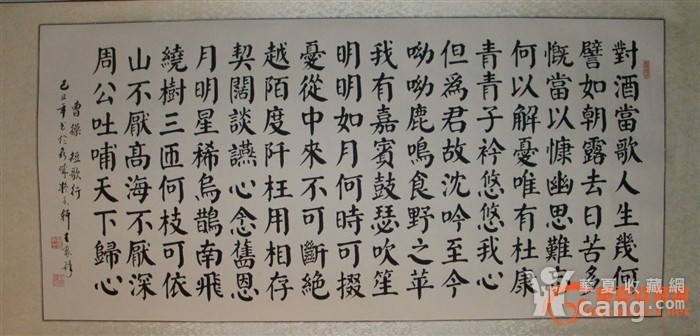 對酒當歌人生幾何
譬如朝露去日苦多
慨當以慷幽思難
何以解憂唯有杜康
青青子衿悠悠我心
但爲君故沈吟至今
呦呦鹿鳴食野之苹
我有嘉賓鼓瑟吹笙
明明如月何時可掇
憂從中來不可斷絶
越陌度阡枉用相存
契闊談讌心念舊恩
月明星稀烏鵲南飛
繞樹三匝何枝可依
山不厭高海不厭深
周公吐哺天下歸心
曹操 短歌行
華夏收藏網
cang.com